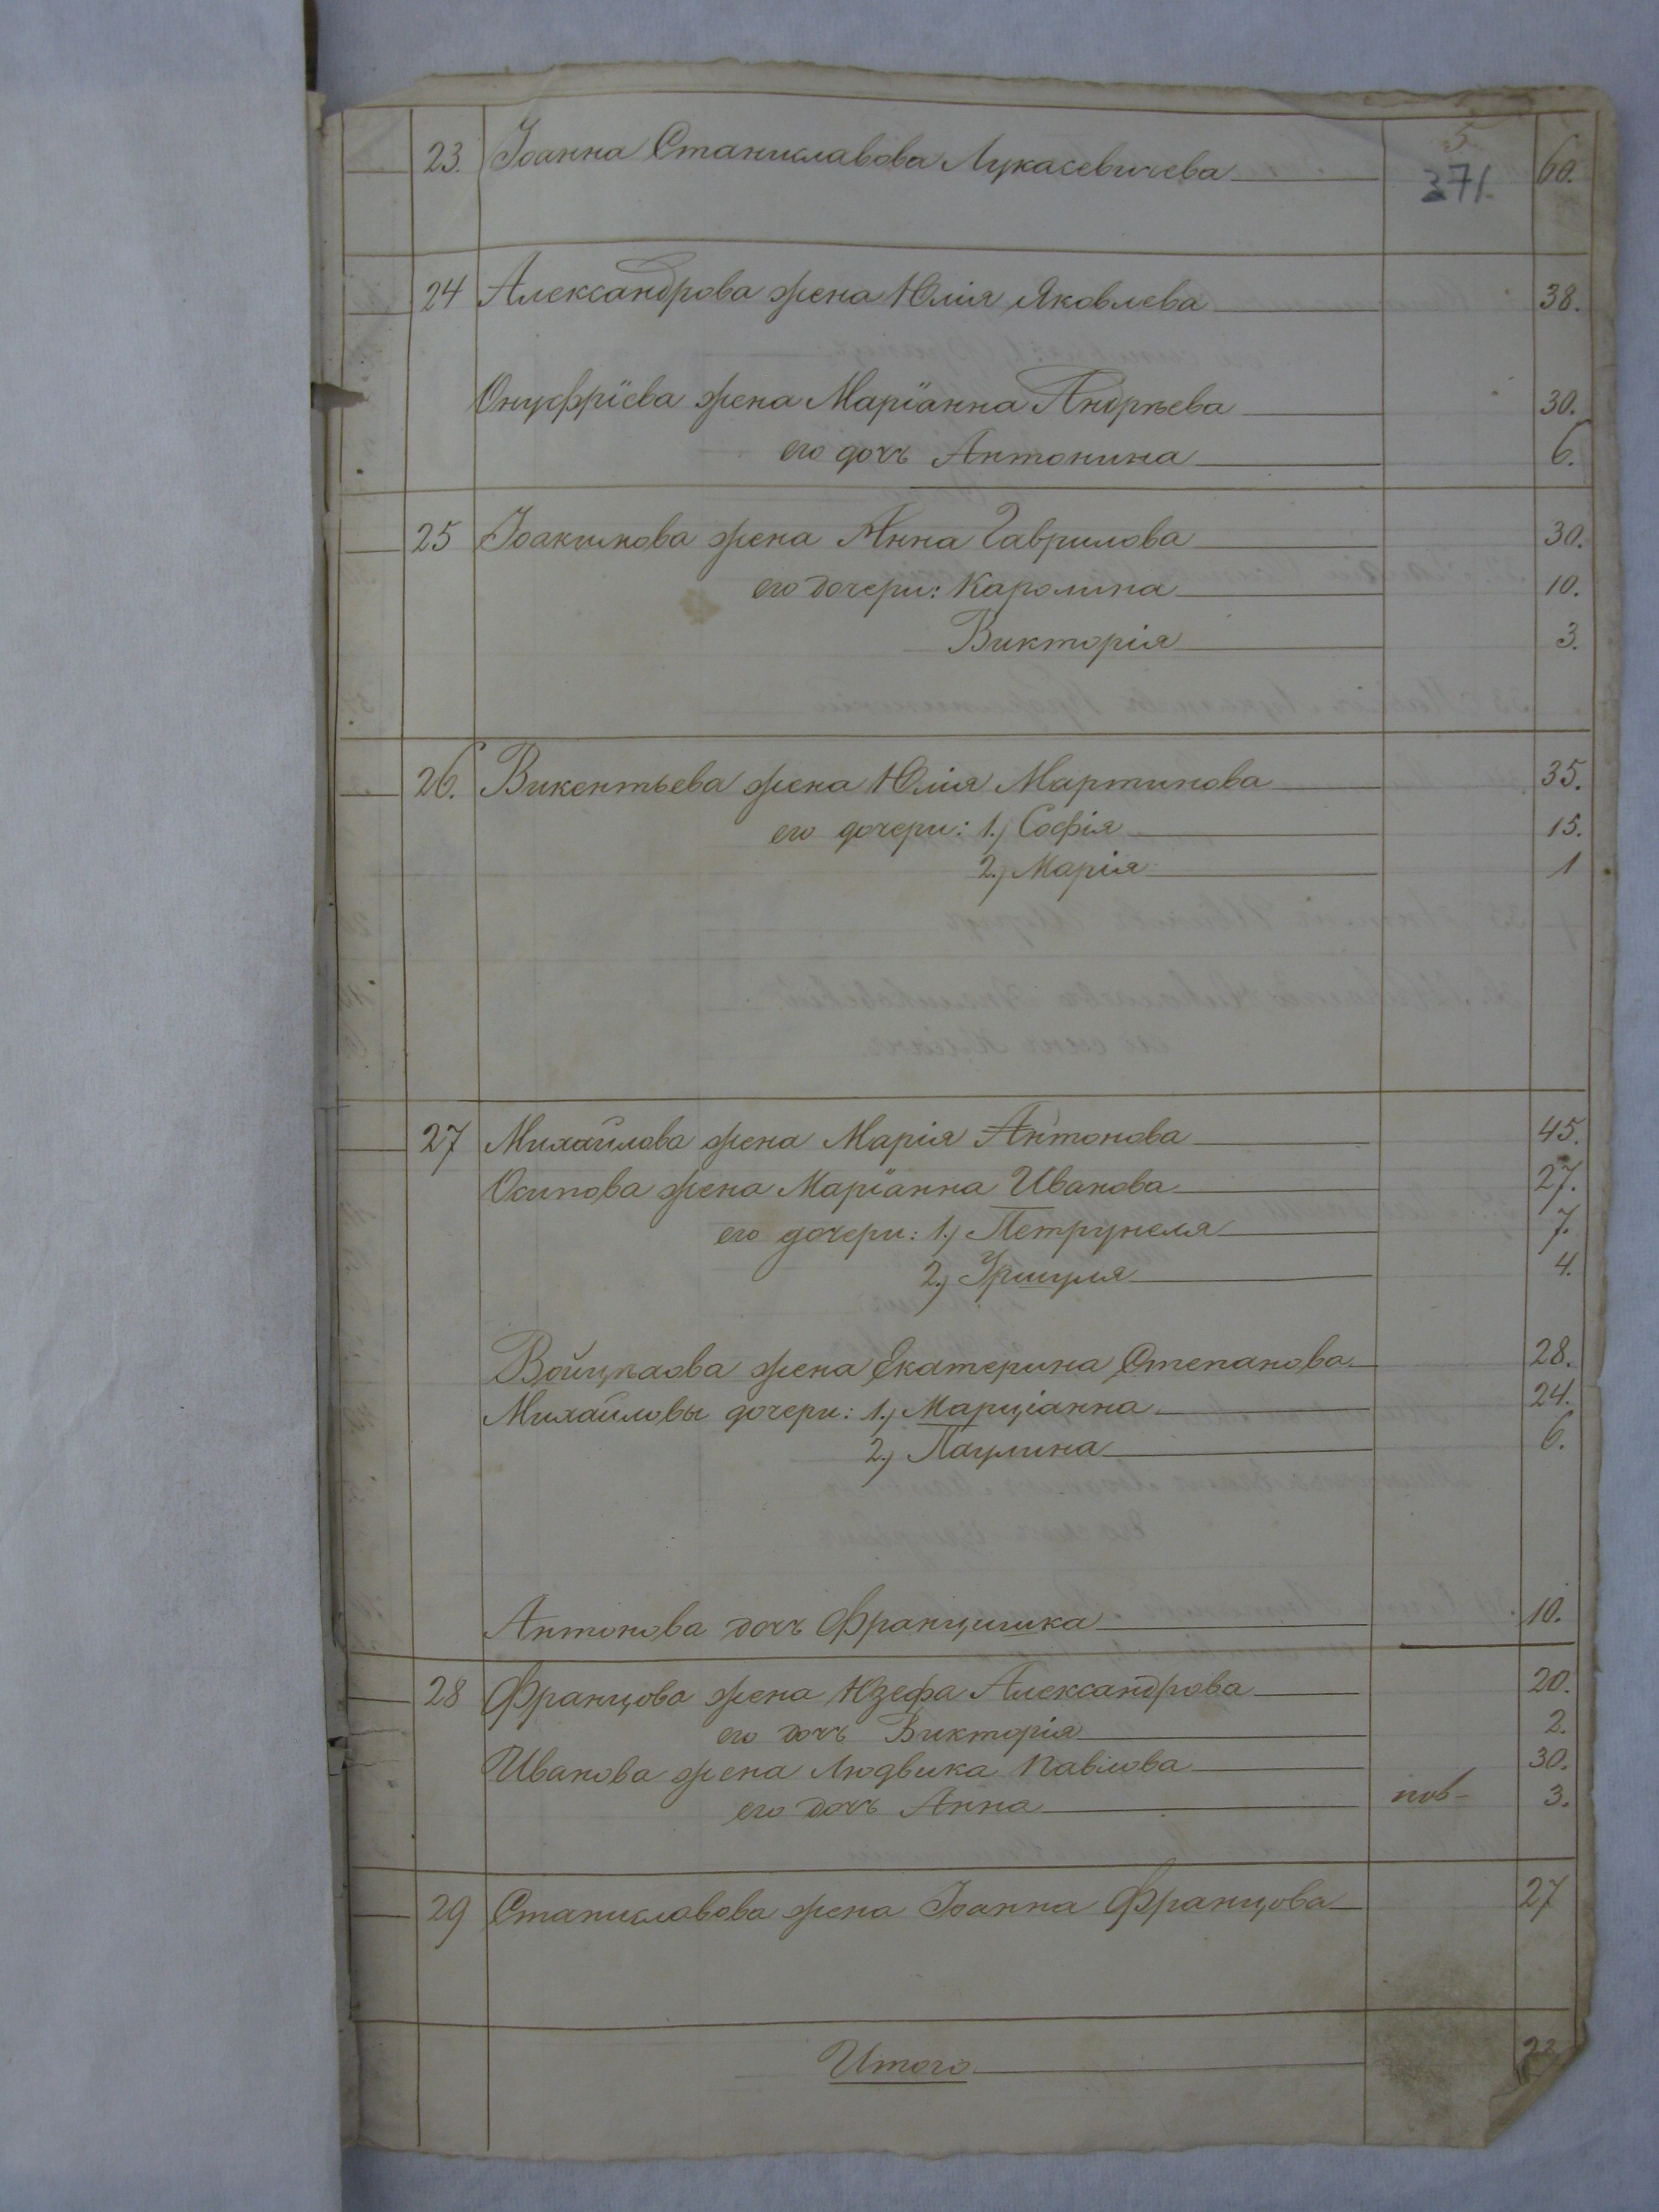 5
23. Іоанна Станиславова Лукасевичева 371. 60.
24 Александрова жена Юлія Яковлева 38.
Онуфріева жена Маріанна Андрѣева 30.
его дочь Антонина 6.
25 Іоакимова жена Анна Гаврилова 30.
его дочери: Каролина 10.
Викторія 3.
26. Викентьева жена Юлія Мартинова 35.
его дочери: 1.) Софія 15.
2.) Марія 1
27 Михайлова жена Марія Антонова 45.
Осипова жена Маріанна Иванова 27.
его дочери: 1.) Петрунеля 7.
2.) Уршуля 4.
Войцѣхова жена Екатерина Степанова 28.
Михайловы дочери: 1.) Марціанна 24.
2.) Паулина 6.
Антонова дочь Францишка 10.
28 Францова жена Юзефа Александрова 20.
его дочь Викторія 2.
Иванова жена Людвика Павлова 30.
его дочь Анна нов- 3.
29 Станиславова жена Іоанна Францова 27
Итого 22